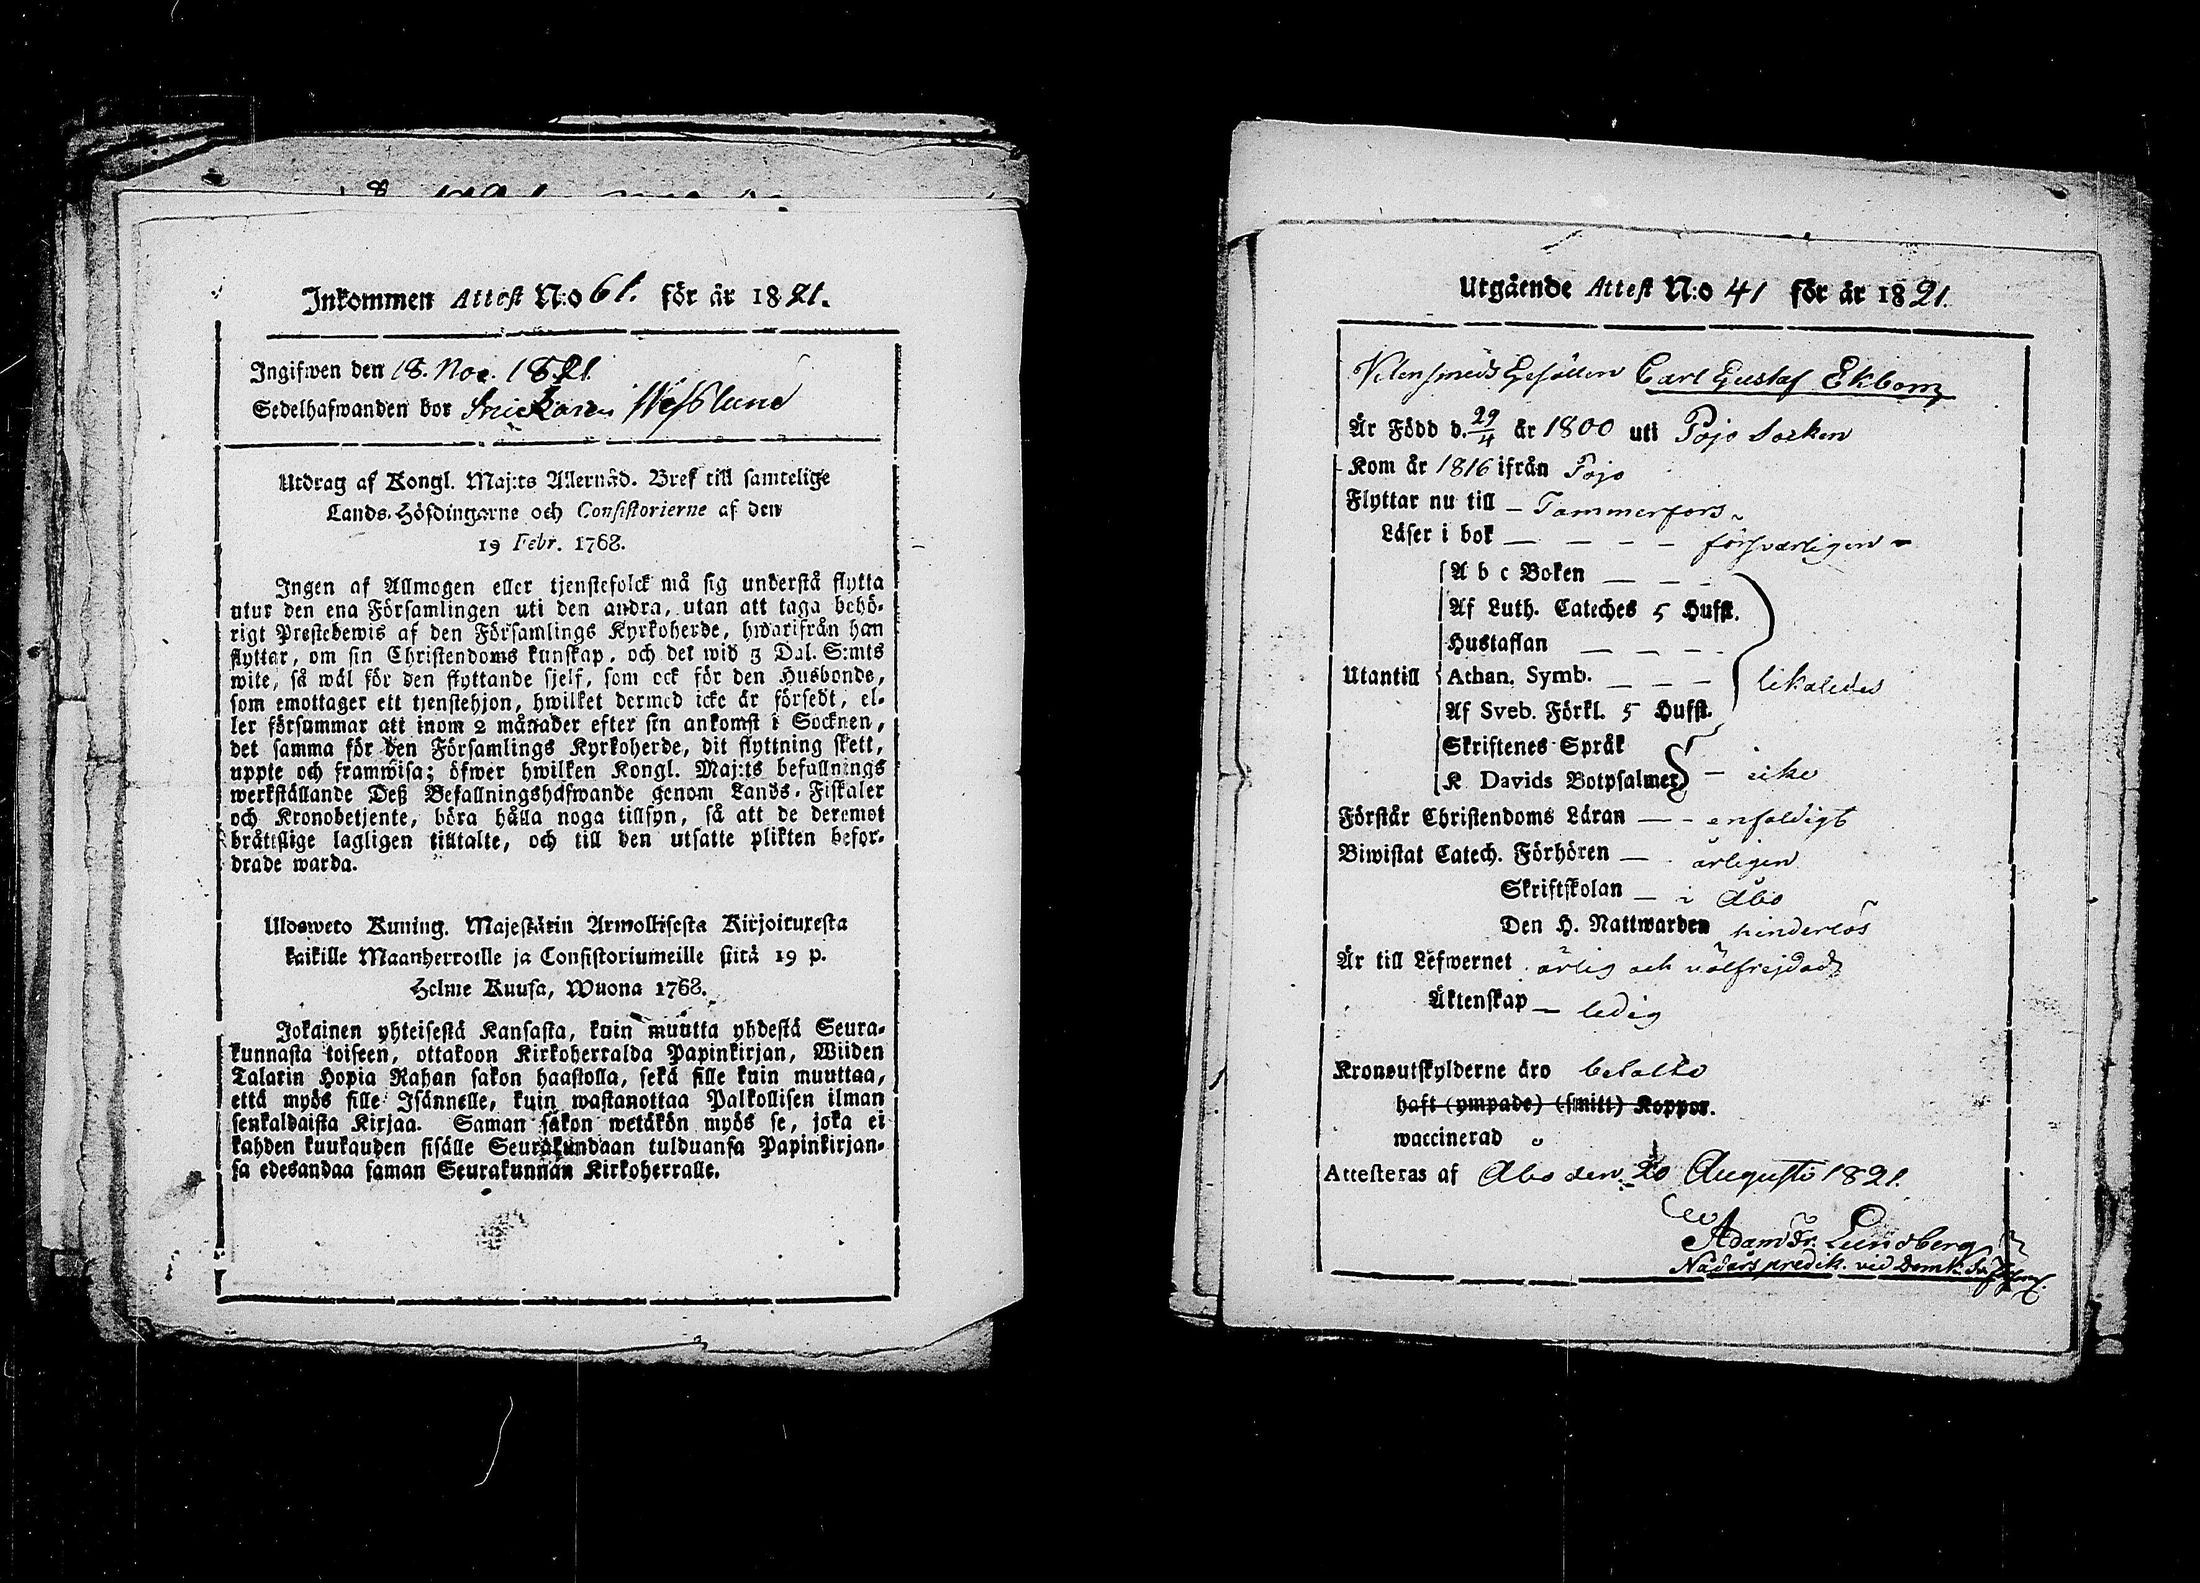 Inkommen Attest N:o 61. för år 1821.
Ingifwen den 18. Nov. 1821.
Sedelhafwanden bor Snickaren Westlund
Utdrag af Kongl. Maj:ts Allernåd. Bref till samtelige
Lands-Höfdingarne och Consistorierne af den
19 Febr. 1768.
Ingen af Allmogen eller tjenstefolck må sig understå flytta
utur den ena Församlingen uti den andra, utan att taga behö-
rigt Prestebewis af den Församlings Kyrkoherde, hwarifrån han
flyttar, om sin Christendoms kunskap, och det wid 3 Dal. S:mts
wite, så wäl för den flyttande sjelf, som ock för den Husbonde,
som emottager ett tjenstehjon, hwilket dermed icke är försedt, el-
ler försummar att inom 2 månader efter sin ankomst i Socknen,
det samma för den Församlings Kyrkoherde, dit flyttning skett,
uppte och framwisa; öfwer hwilken Kongl. Maj:ts befallnings
werkställande Deß Befallningshafwande genom Lands-Fiskaler
och Kronobetjente, böra hålla noga tillsyn, så att de deremot
bråttslige lagligen tilltalte, och till den utsatte plikten befor-
drade warda.
Uldosweto Kuning. Majestätin Armollisesta Kirjoituxesta
kaikille Maanherroille ja Consistoriumeille siitä 19 p.
Helme Kuusa, Wuona 1768.
Jokainen yhteisestä Kansasta, kuin muutta yhdestä Seura-
kunnasta toiseen, ottakoon Kirkoherralda Papinkirjan, Wiiden
Talarin Hopia Rahan sakon haastolla, sekä sille kuin muuttaa,
että myös sille Isännelle, kuin wastanottaa Palkollisen ilman
senkaldaista Kirjaa. Saman sakon wetäkön myös se, joka ei
kahden kuukauden sisälle Seurakundaan tulduansa Papinkirjan-
sa edesandaa saman Seurakunnan Kirkoherralle.
Utgående Attest N:o 41 för år 1821.
Gesällen Carl Gustaf Ekbom
Är Född d. 29/4 år 1800 uti Pojo Socken
Kom år 1816 ifrån Pojo
Flyttar nu till – Tammerfors
Läser i bok — — — — försvarligen
A b c Boken — — —
Af Luth. Cateches 5 Hufst.
Hustaflan — — — —
Utantill Athan. Symb. — — — likaledes
Af Sveb. Förkl. 5 Hufst.
Skriftenes Språk
K Davids Botpsalmer – icke
Förstår Christendoms Läran — – enfaldigt
Biwistat Catech. Förhören — årligen
Skriftskolan — i Åbo
Den H. Nattwarden hinderlös
Är till Lefwernet ärlig och välfrejdad
Äktenskap — ledig
Kronoutskylderne äro betalte
haft (ympade) (smitt) Koppor.
waccinerad
Attesteras af Åbo den 20 Augusti 1821.
Adam Fr. Lundberg
Nådårs predik. vid Domk.